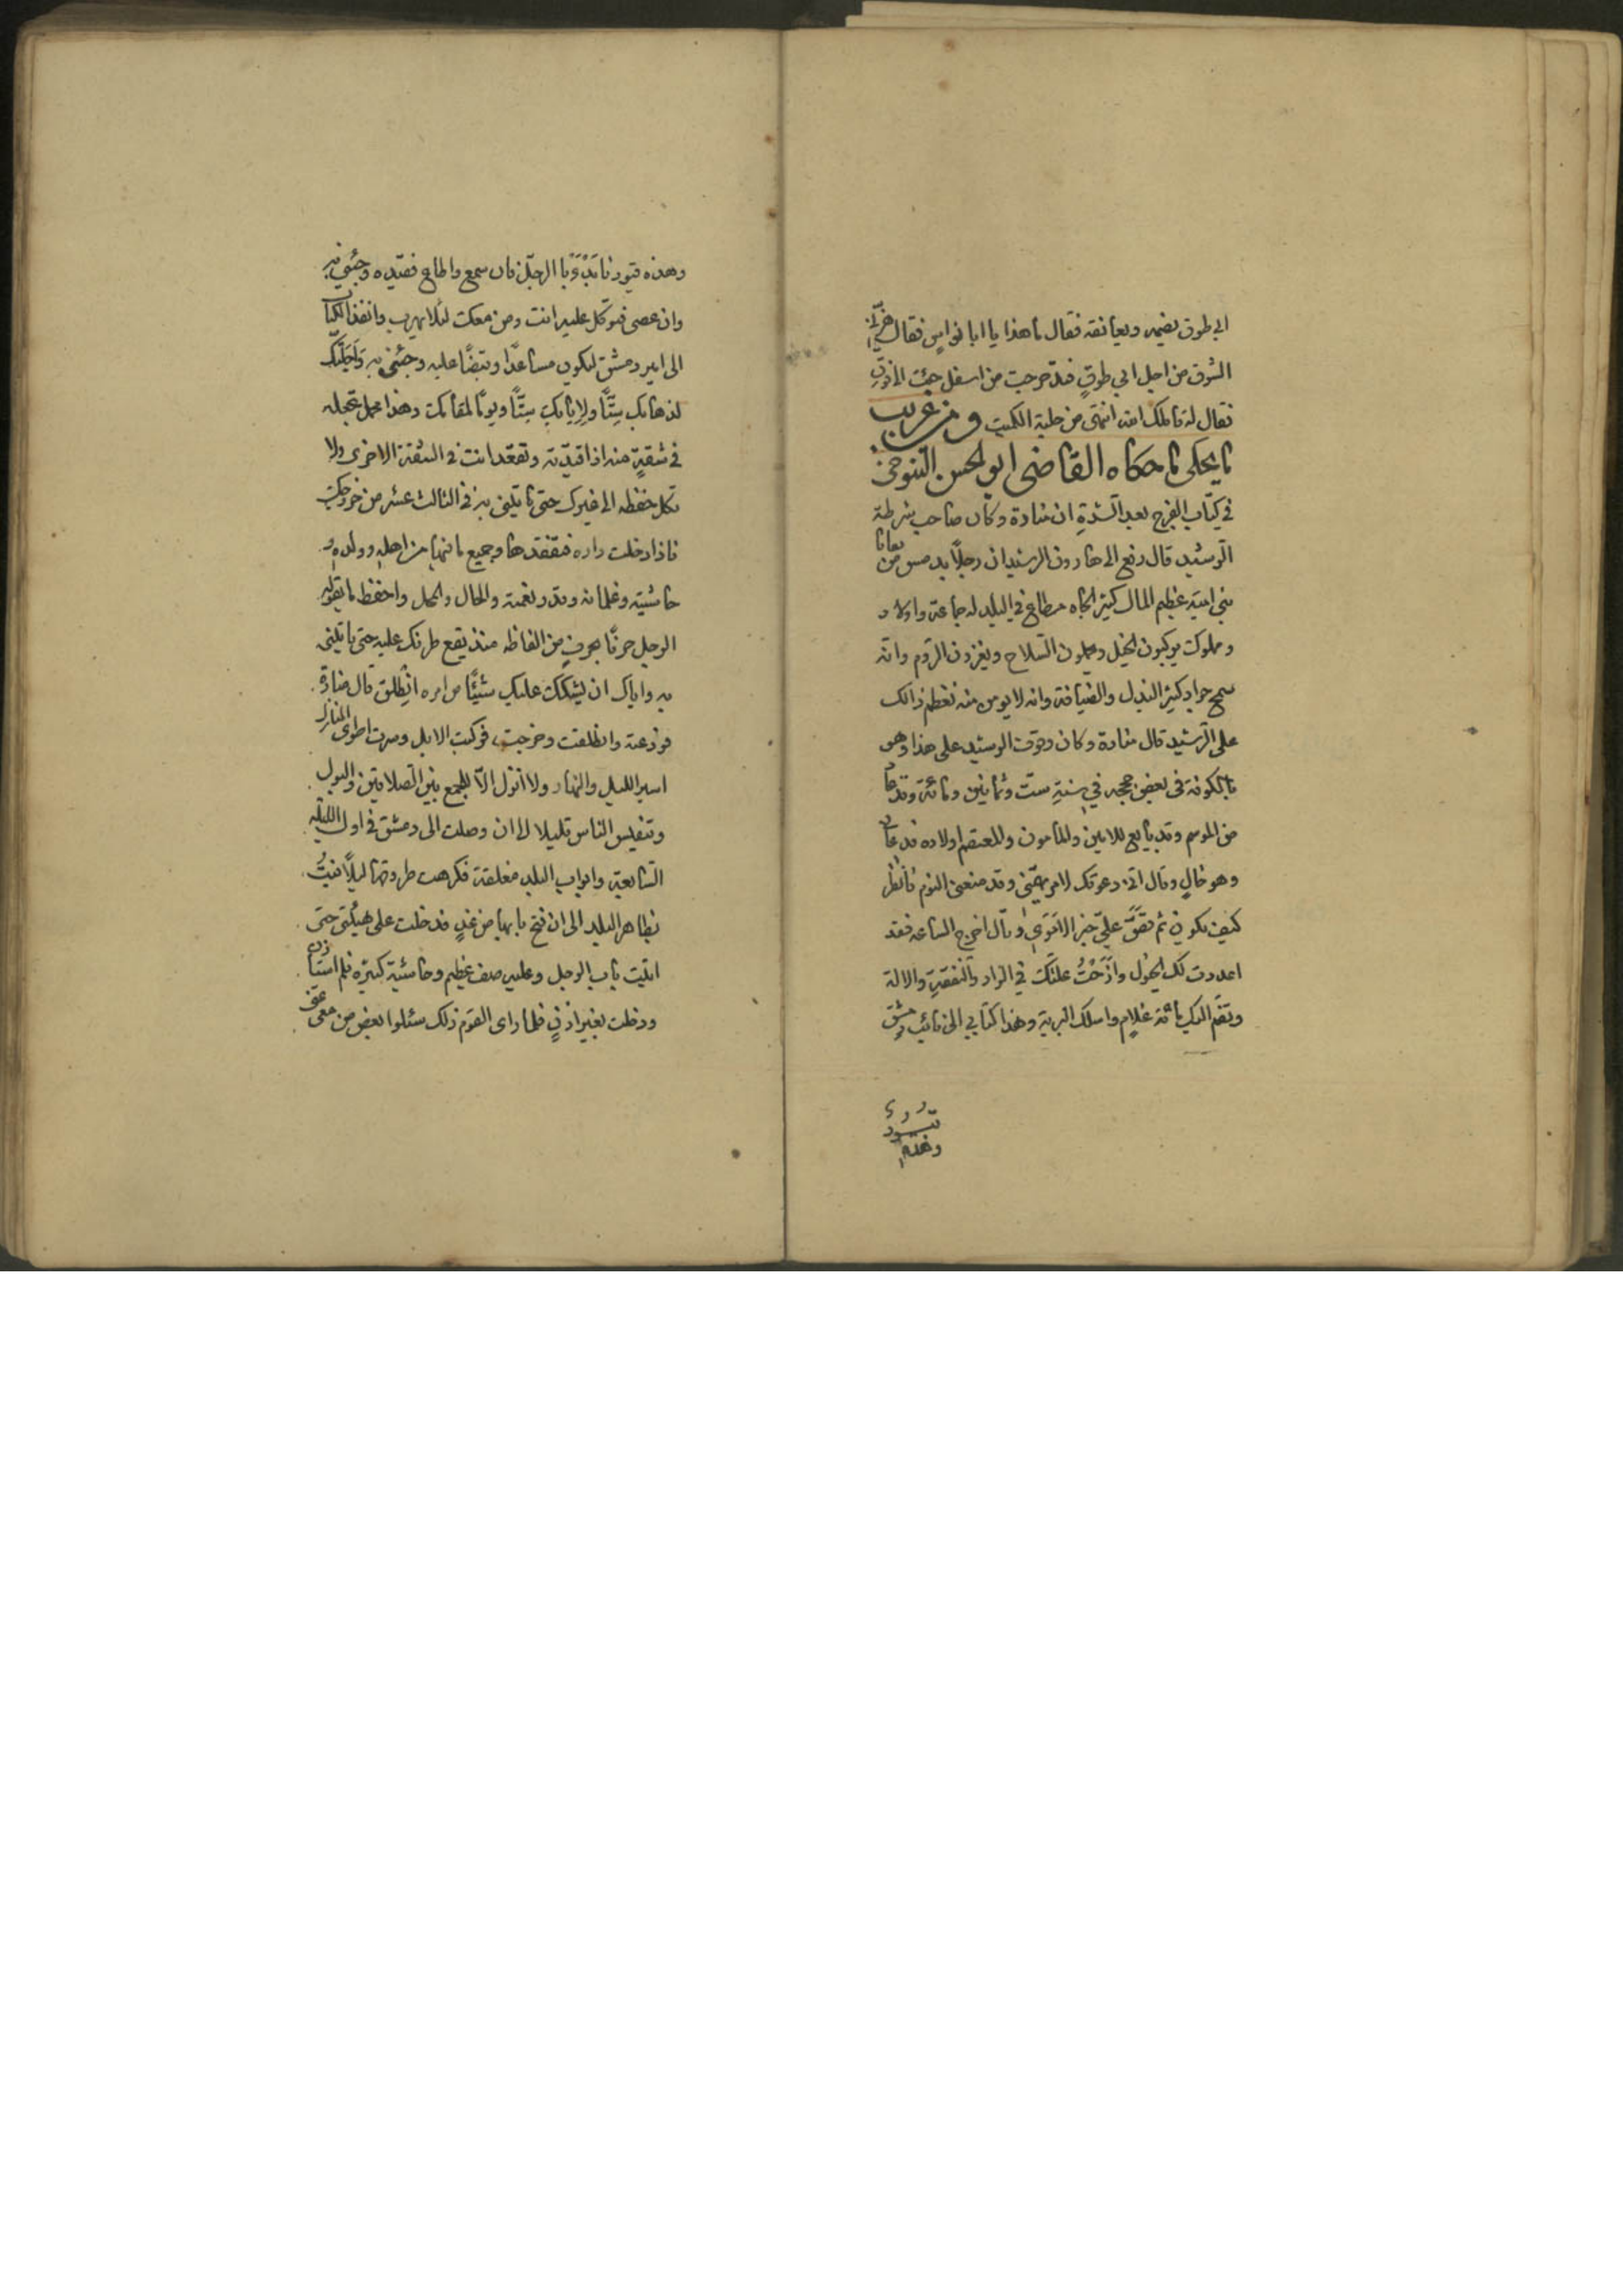 ابي طوق يضمه ويعانقه فقال ما هذا يا ابا نواس فقال هزني
الشوق من اجل ابي طوق فتدحرجت من اسفل حيث الى فوق
فقال له مالك انتمى من حلبة الكميت ومن غريب
ما يحكى ما حكاه القاضي ابو الحسن التنوخي
في كتاب الفرج بعد الشدة ان منارة وكان صاحب شرطة
الرشيد قال رفع الى هارون الرشيد ان رجلاً بدمس من بقايا
بني امية عظيم المال كثير الجاه مطاع في البلد له جماعة واولاد
ومملوكت يركبون الخيل ويحملون السلاح ويغزون الروم وانه
سمح جواد كثير البذل والضيافة وانه لا يومن منه فعظم ذالك
على الرشيد قال منارة وكان وقوف الرشيد على هذا وهو
بالكوفة في بعض حججه في سنة ست وثمانين ومائة وقد عاد
من الموسم وقد بايع للامين والمامون والمعتصم اولاده فدعاني
وهو خالٍ وقال اني دعوتك لامر يهمني وقد منعني النوم فانظر
كيف يكون ثم قص عليّ خبر الاموي وقال اخرج الساعه فقد
اعددت لك الخيول وازحت علتك في الزاد والنفقة والالة
وتضم اليك مائة غلام واسلك البرية وهذا كتابي الى نائب دمشق
وهذه قيود
وهذه قيود فابدء بالرجل فان سمع واطاع فقيده وجئني به
وان عصى فتوكل عليه انت ومن معك لئلا يهرب وانفذ الكتاب
الى امير دمشق ليكون مساعدا وقبضا عليه وجئني به واجلتك
لذهابك ستًّا ولايابك ستًّا ويومًا لمقامك وهذا محمل تجعله
في شقة منه اذا قيدته وتقعد انت في الشقة الاخرى ولا
تكل حفظه الى غيرك حتى تاتيني به في الثالث عشر من خروجك
فاذا دخلت داره فتفقدها وجميع ما فيها من اهله وولده و
حاشيته وغلمانه وقدر نعمته والحال والمحل واحفظ ما يقوله
الرجل حرفًا بحرف من الفاظه منذ يقع طرفك عليه حتى تاتيني
به واياك ان يشكك عليك شيئًا من امره انطلق قال منارة
فودعته وانطلقت وخرجت فركبت الابل وسرت اطوى المنازل
اسير الليل والنهار ولا انزل الا للجمع بين الصلاتين والبول
وتنفيس الناس قليلا الى ان وصلت الى دمشق في اول الليلة
السابعة وابواب البلد مغلقة فكرهت طروقها ليلاً فبتُّ
بظاهر البلد الى ان فتح بابها من غدٍ فدخلت على هيئتي حتى
اتيت باب الرجل وعليه صف عظيم وحاشية كثيرة فلم استاذن
ودخلت بغير اذنٍ فلما راى القوم ذلك سئلوا بعض من معي عني